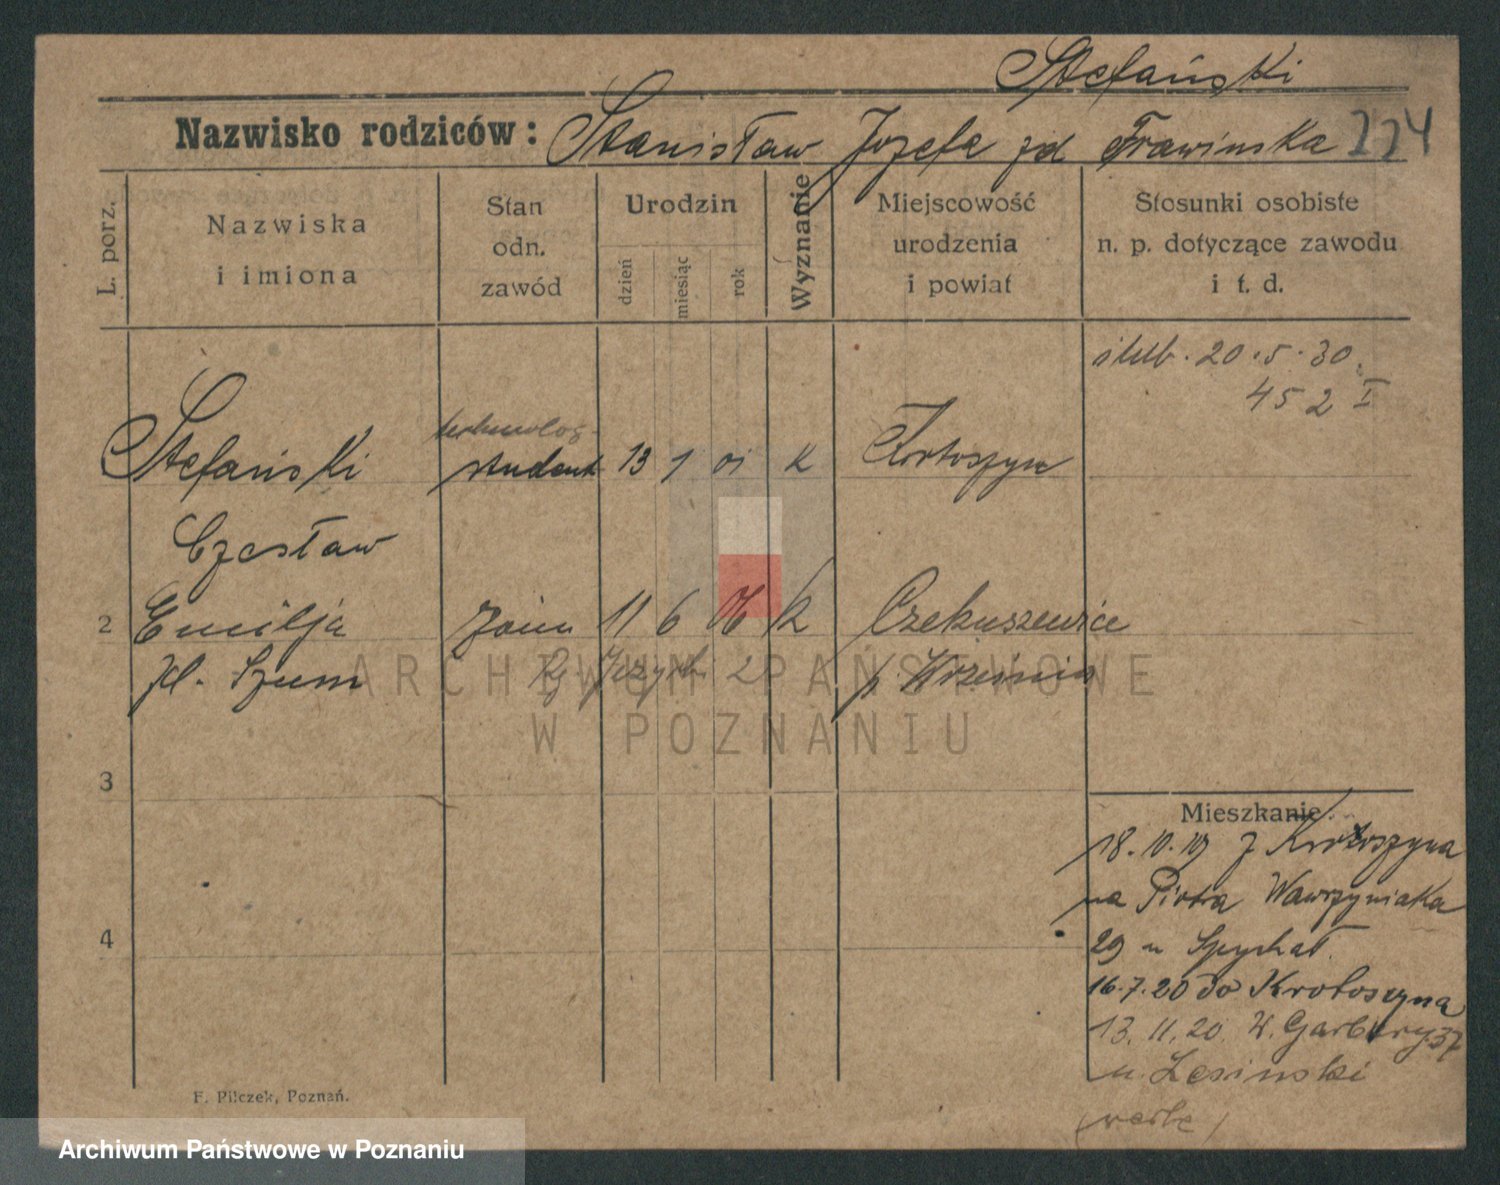 Stefański
Nazwisko rodziców: Stanisław Józefa zd Trawińska 224
L. porz.
Nazwiska
i imiona
Stan
odn.
zawód
Urodzin
dzień
miesiąc
rok
Wyznanie
Miejscowość
urodzenia
i powiat
Stosunki osobiste
n. p. dotyczące zawodu
i t. d.
ślub. 20.5.30
452 I
technolog
Stefański student 13 1 01 k Krotoszyn
Czesław
2 Emilja 11 6 06 k Czekuszewice
Szum 2 p. Września
ARCHIWUM PAŃSTWOWE
W POZNANIU
3
4
Mieszkanie:
18.10.19 z Krotoszyna
na Piotra Wawrzyniaka
29 u Spychał.
16.7.20 do Krotoszyna
13.11.20. W. Garbary 37
u. Lesinski
F. Pilczek, Poznań.
Archiwum Państwowe w Poznaniu